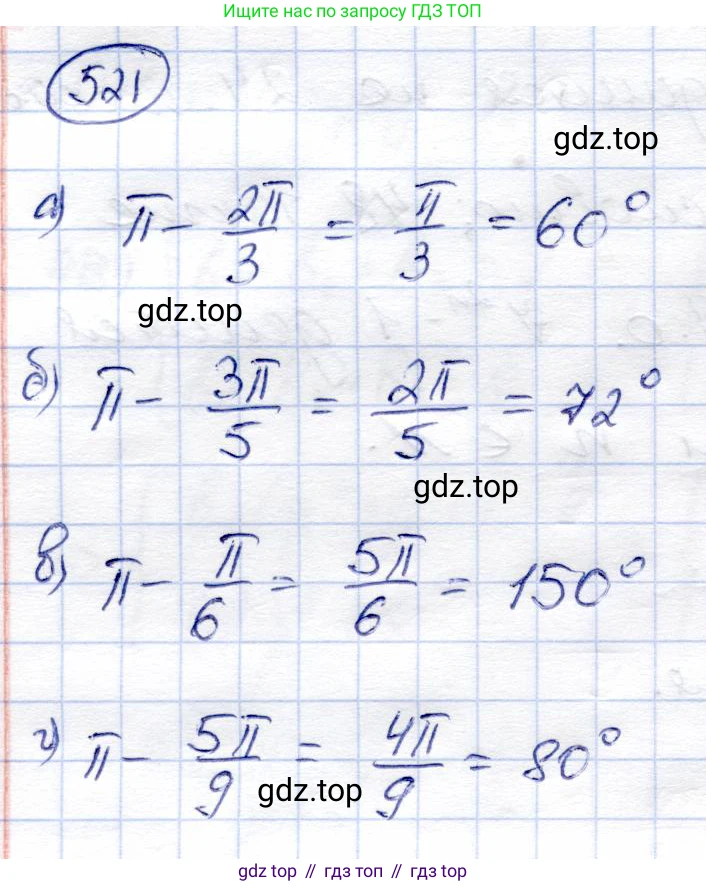 Ищите нас по запросу ГДЗ ТОП
521
gdz.top
а) π - 2π/3 = π/3 = 60°
gdz.top
б) π - 3π/5 = 2π/5 = 72°
gdz.top
в) π - π/6 = 5π/6 = 150°
г) π - 5π/9 = 4π/9 = 80°
gdz.top
gdz top // гдз топ // гдз top